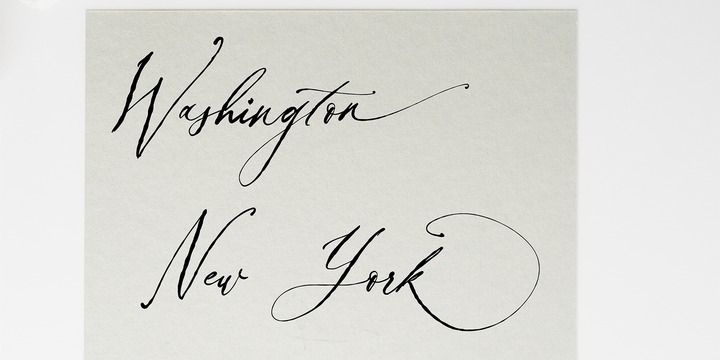 Washington
New York